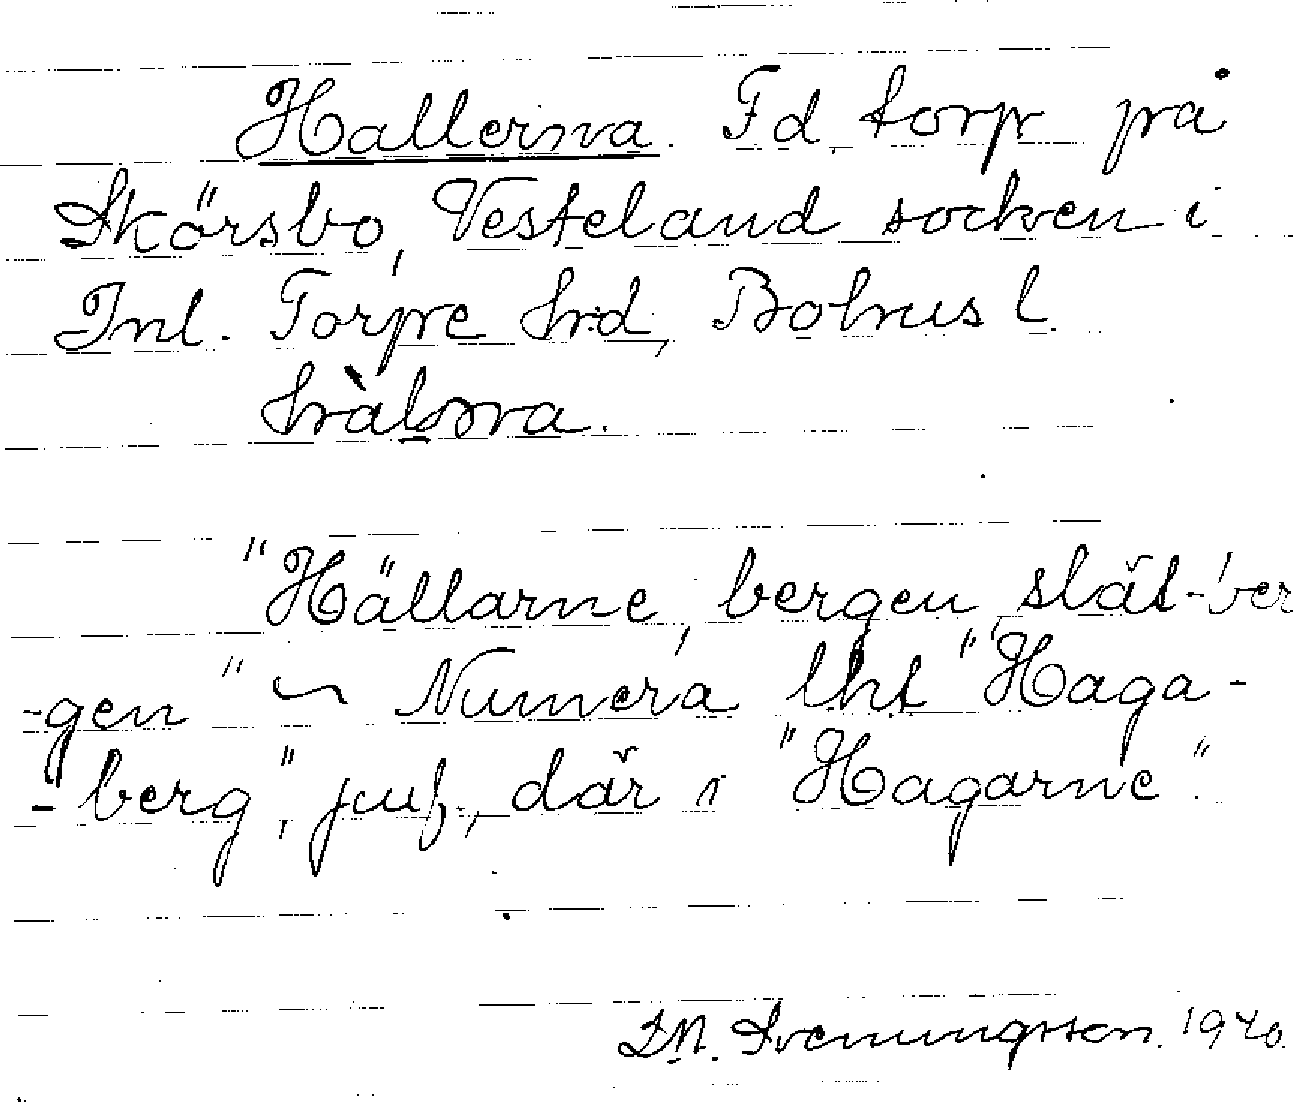 Hallerna. Fd torp på
Skörsbo, Vesteland socken i
Inl. Torpe hrd, Bohusl.
"Hällarne, bergen, slät-ber
-gen" ~ Numera lht "Haga-
-berg", juf, där i "Hagarne".
Svenungsson. 1940.